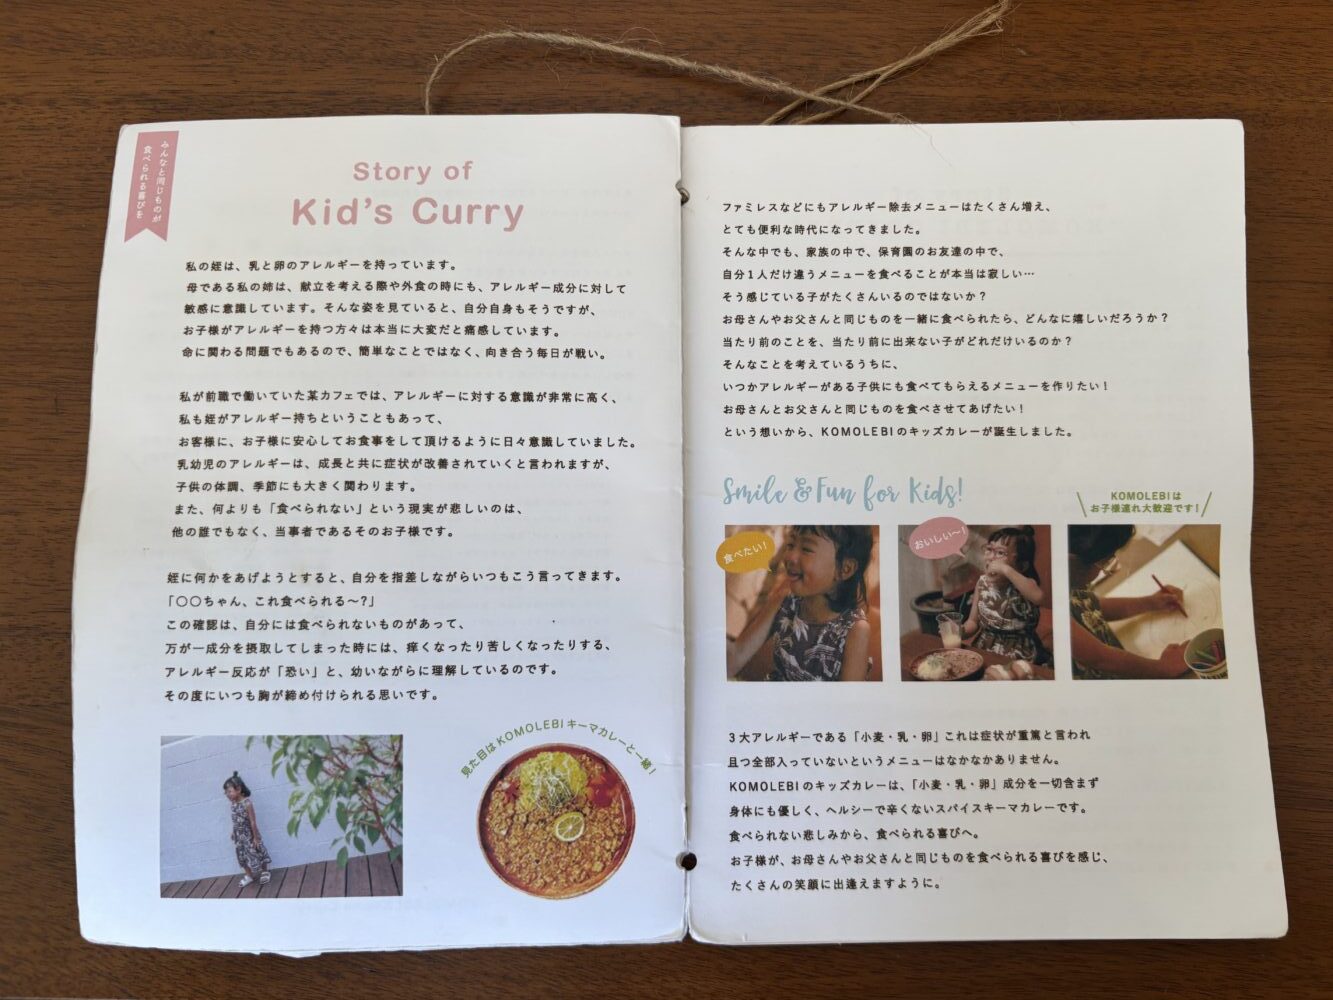 みんなと同じものが
食べられる喜びを
Story of
Kid's Curry
私の姪は、乳と卵のアレルギーを持っています。
母である私の姉は、献立を考える際や外食の時にも、アレルギー成分に対して
敏感に意識しています。そんな姿を見ていると、自分自身もそうですが、
お子様がアレルギーを持つ方々は本当に大変だと痛感しています。
命に関わる問題でもあるので、簡単なことではなく、向き合う毎日が戦い。
私が前職で働いていた某カフェでは、アレルギーに対する意識が非常に高く、
私も姪がアレルギー持ちということもあって、
お客様に、お子様に安心してお食事をして頂けるように日々意識していました。
乳幼児のアレルギーは、成長と共に症状が改善されていくと言われますが、
子供の体調、季節にも大きく関わります。
また、何よりも「食べられない」という現実が悲しいのは、
他の誰でもなく、当事者であるそのお子様です。
姪に何かをあげようとすると、自分を指差しながらいつもこう言ってきます。
「〇〇ちゃん、これ食べられる〜?」
この確認は、自分には食べられないものがあって、
万が一成分を摂取してしまった時には、痒くなったり苦しくなったりする、
アレルギー反応が「恐い」と、幼いながらに理解しているのです。
その度にいつも胸が締め付けられる思いです。
見た目はKOMOLEBIキーマカレーと一緒!
ファミレスなどにもアレルギー除去メニューはたくさん増え、
とても便利な時代になってきました。
そんな中でも、家族の中で、保育園のお友達の中で、
自分1人だけ違うメニューを食べることが本当は寂しい…
そう感じている子がたくさんいるのではないか?
お母さんやお父さんと同じものを一緒に食べられたら、どんなに嬉しいだろうか?
当たり前のことを、当たり前に出来ない子がどれだけいるのか?
そんなことを考えているうちに、
いつかアレルギーがある子供にも食べてもらえるメニューを作りたい!
お母さんとお父さんと同じものを食べさせてあげたい!
という想いから、KOMOLEBIのキッズカレーが誕生しました。
Smile & Fun for Kids!
KOMOLEBIは
お子様連れ大歓迎です!
食べたい!
おいしい〜!
3大アレルギーである「小麦・乳・卵」これは症状が重篤と言われ
且つ全部入っていないというメニューはなかなかありません。
KOMOLEBIのキッズカレーは、「小麦・乳・卵」成分を一切含まず
身体にも優しく、ヘルシーで辛くないスパイスキーマカレーです。
食べられない悲しみから、食べられる喜びへ。
お子様が、お母さんやお父さんと同じものを食べられる喜びを感じ、
たくさんの笑顔に出逢えますように。